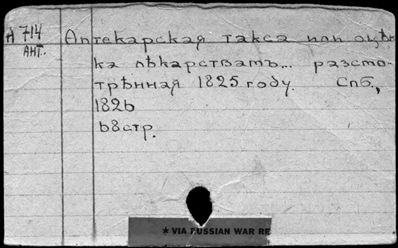 А 714
АНТ.
Аптекарская такса или оцѣн
ка лѣкарствамъ... разсмо-
трѣнная 1825 году. Спб.,
1826
68стр.
★ VIA RUSSIAN WAR RE